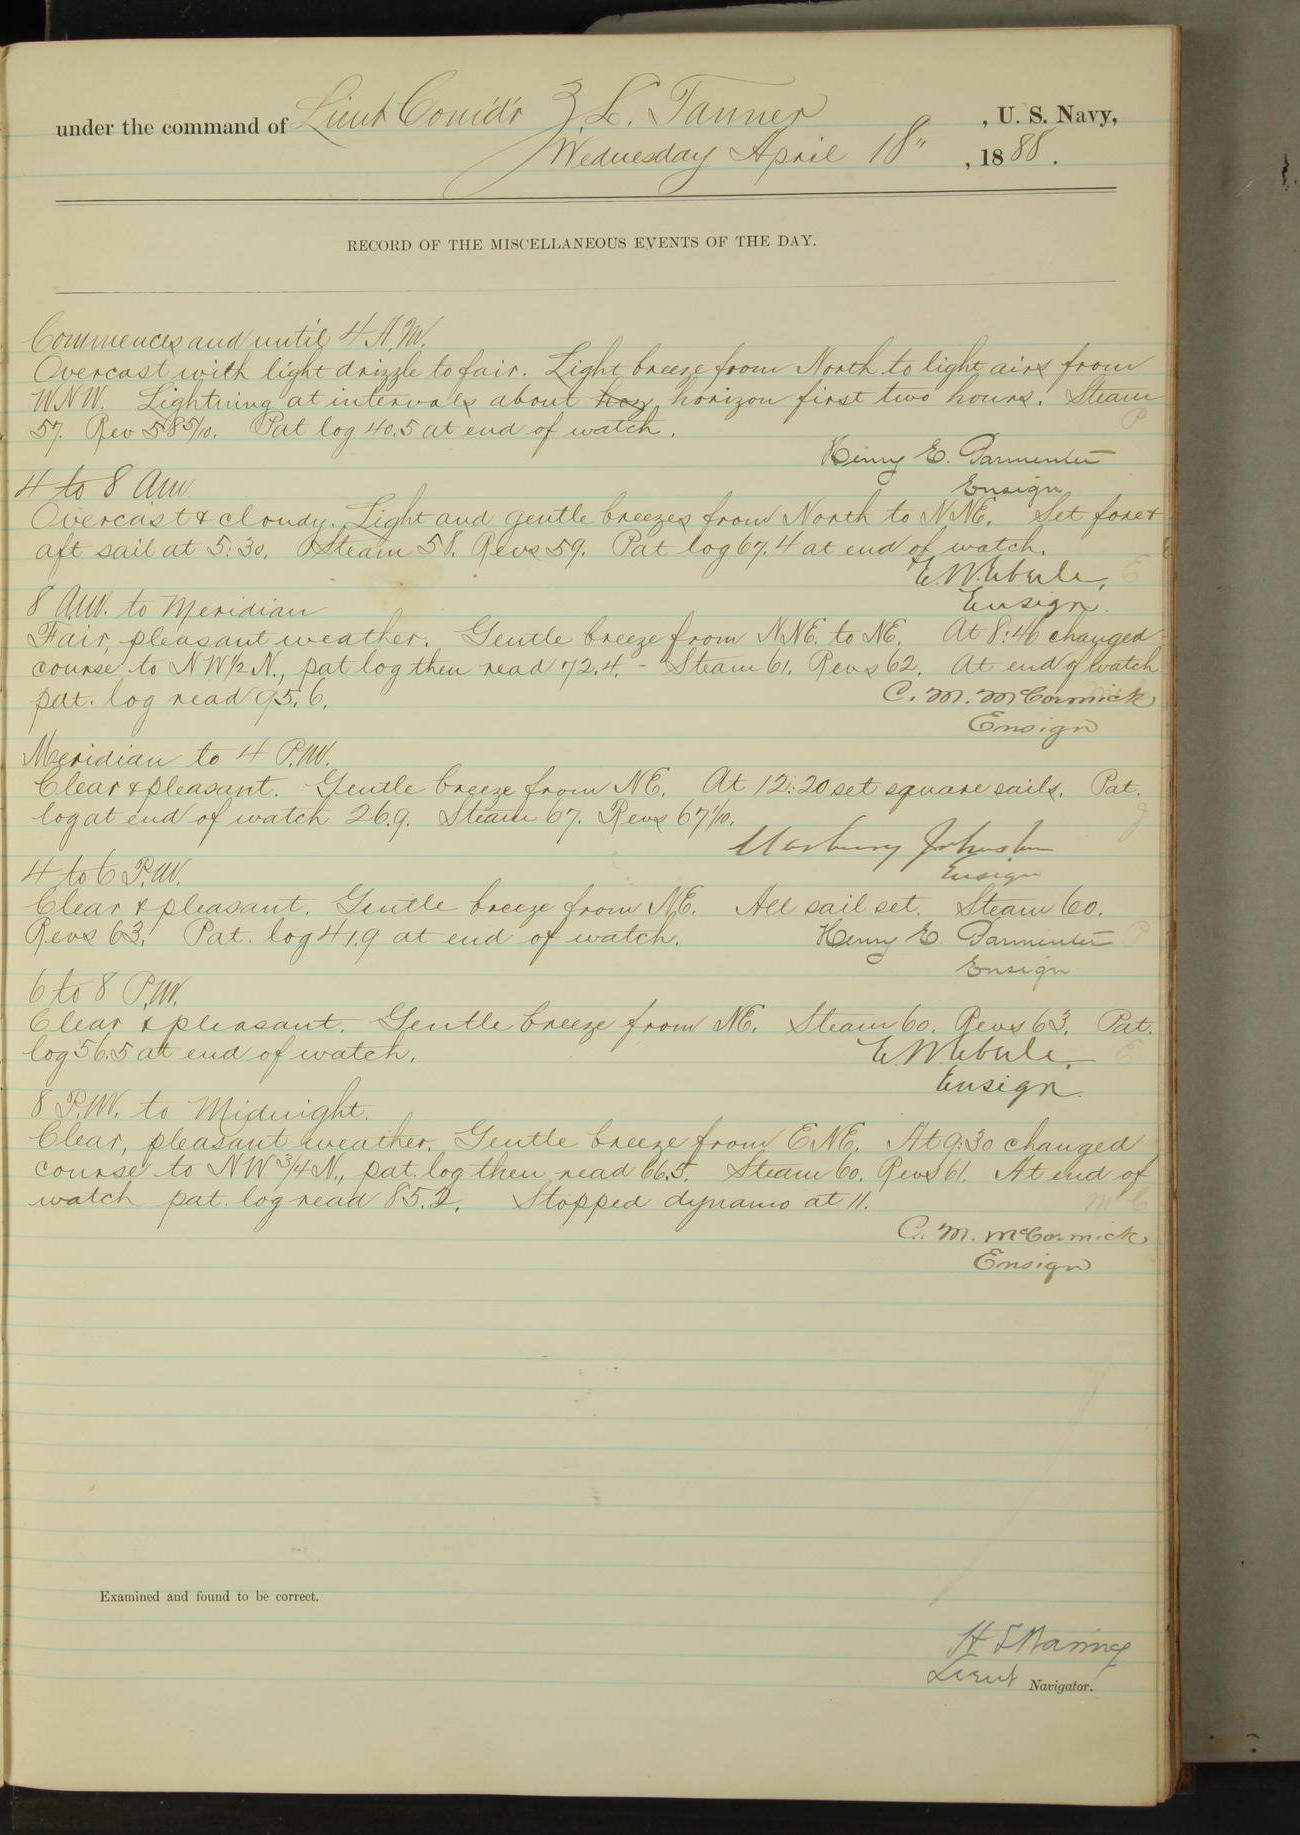 under the command of Lieut Comd'r Z. L. Tanner, U. S. Navy,
Wednesday April 18", 1888.
RECORD OF THE MISCELLANEOUS EVENTS OF THE DAY.
Commences and until 4 A.M.
Overcast with light drizzle to fair. Light breeze from North to light airs from
WNW. Lightning at intervals about horizon first two hours. Steam
57. Rev 58 5/10. Pat log 40.5 at end of watch.
Henry E. Parmenter
Ensign
4 to 8 A.M.
Overcast & cloudy. Light and gentle breezes from North to NNE. Set fore &
aft sail at 5:30. Steam 58. Revs 59. Pat log 67.4 at end of watch.
E. W. Eberle,
Ensign.
8 A.M. to Meridian
Fair, pleasant weather. Gentle breeze from NNE. to NE. At 8:46 changed
course to NW 1/2 N., pat log then read 72.4. - Steam 61. Revs 62. At end of watch
pat. log read 95.6.
C. M. McCormick
Ensign
Meridian to 4 P.M.
Clear & pleasant. Gentle breeze from NE. At 12:20 set square sails. Pat.
log at end of watch 26.9. Steam 67. Revs 67 1/10.
Marbury Johnston
Ensign
4 to 6 P.M.
Clear & pleasant. Gentle breeze from NE. All sail set. Steam 60.
Revs 63. Pat. log 41.9 at end of watch.
Henry E. Parmenter
Ensign
6 to 8 P.M.
Clear & pleasant. Gentle breeze from NE. Steam 60. Revs 63. Pat.
log 56.5 at end of watch.
E. W. Eberle.
Ensign.
8 P.M. to Midnight.
Clear, pleasant weather. Gentle breeze from ENE. At 9:30 changed
course to NW 3/4 N., pat. log then read 66.5. Steam 60. Revs 61. At end of
watch pat. log read 85.2. Stopped dynamo at 11.
C. M. McCormick
Ensign
Examined and found to be correct.
H S Waring
Lieut Navigator.